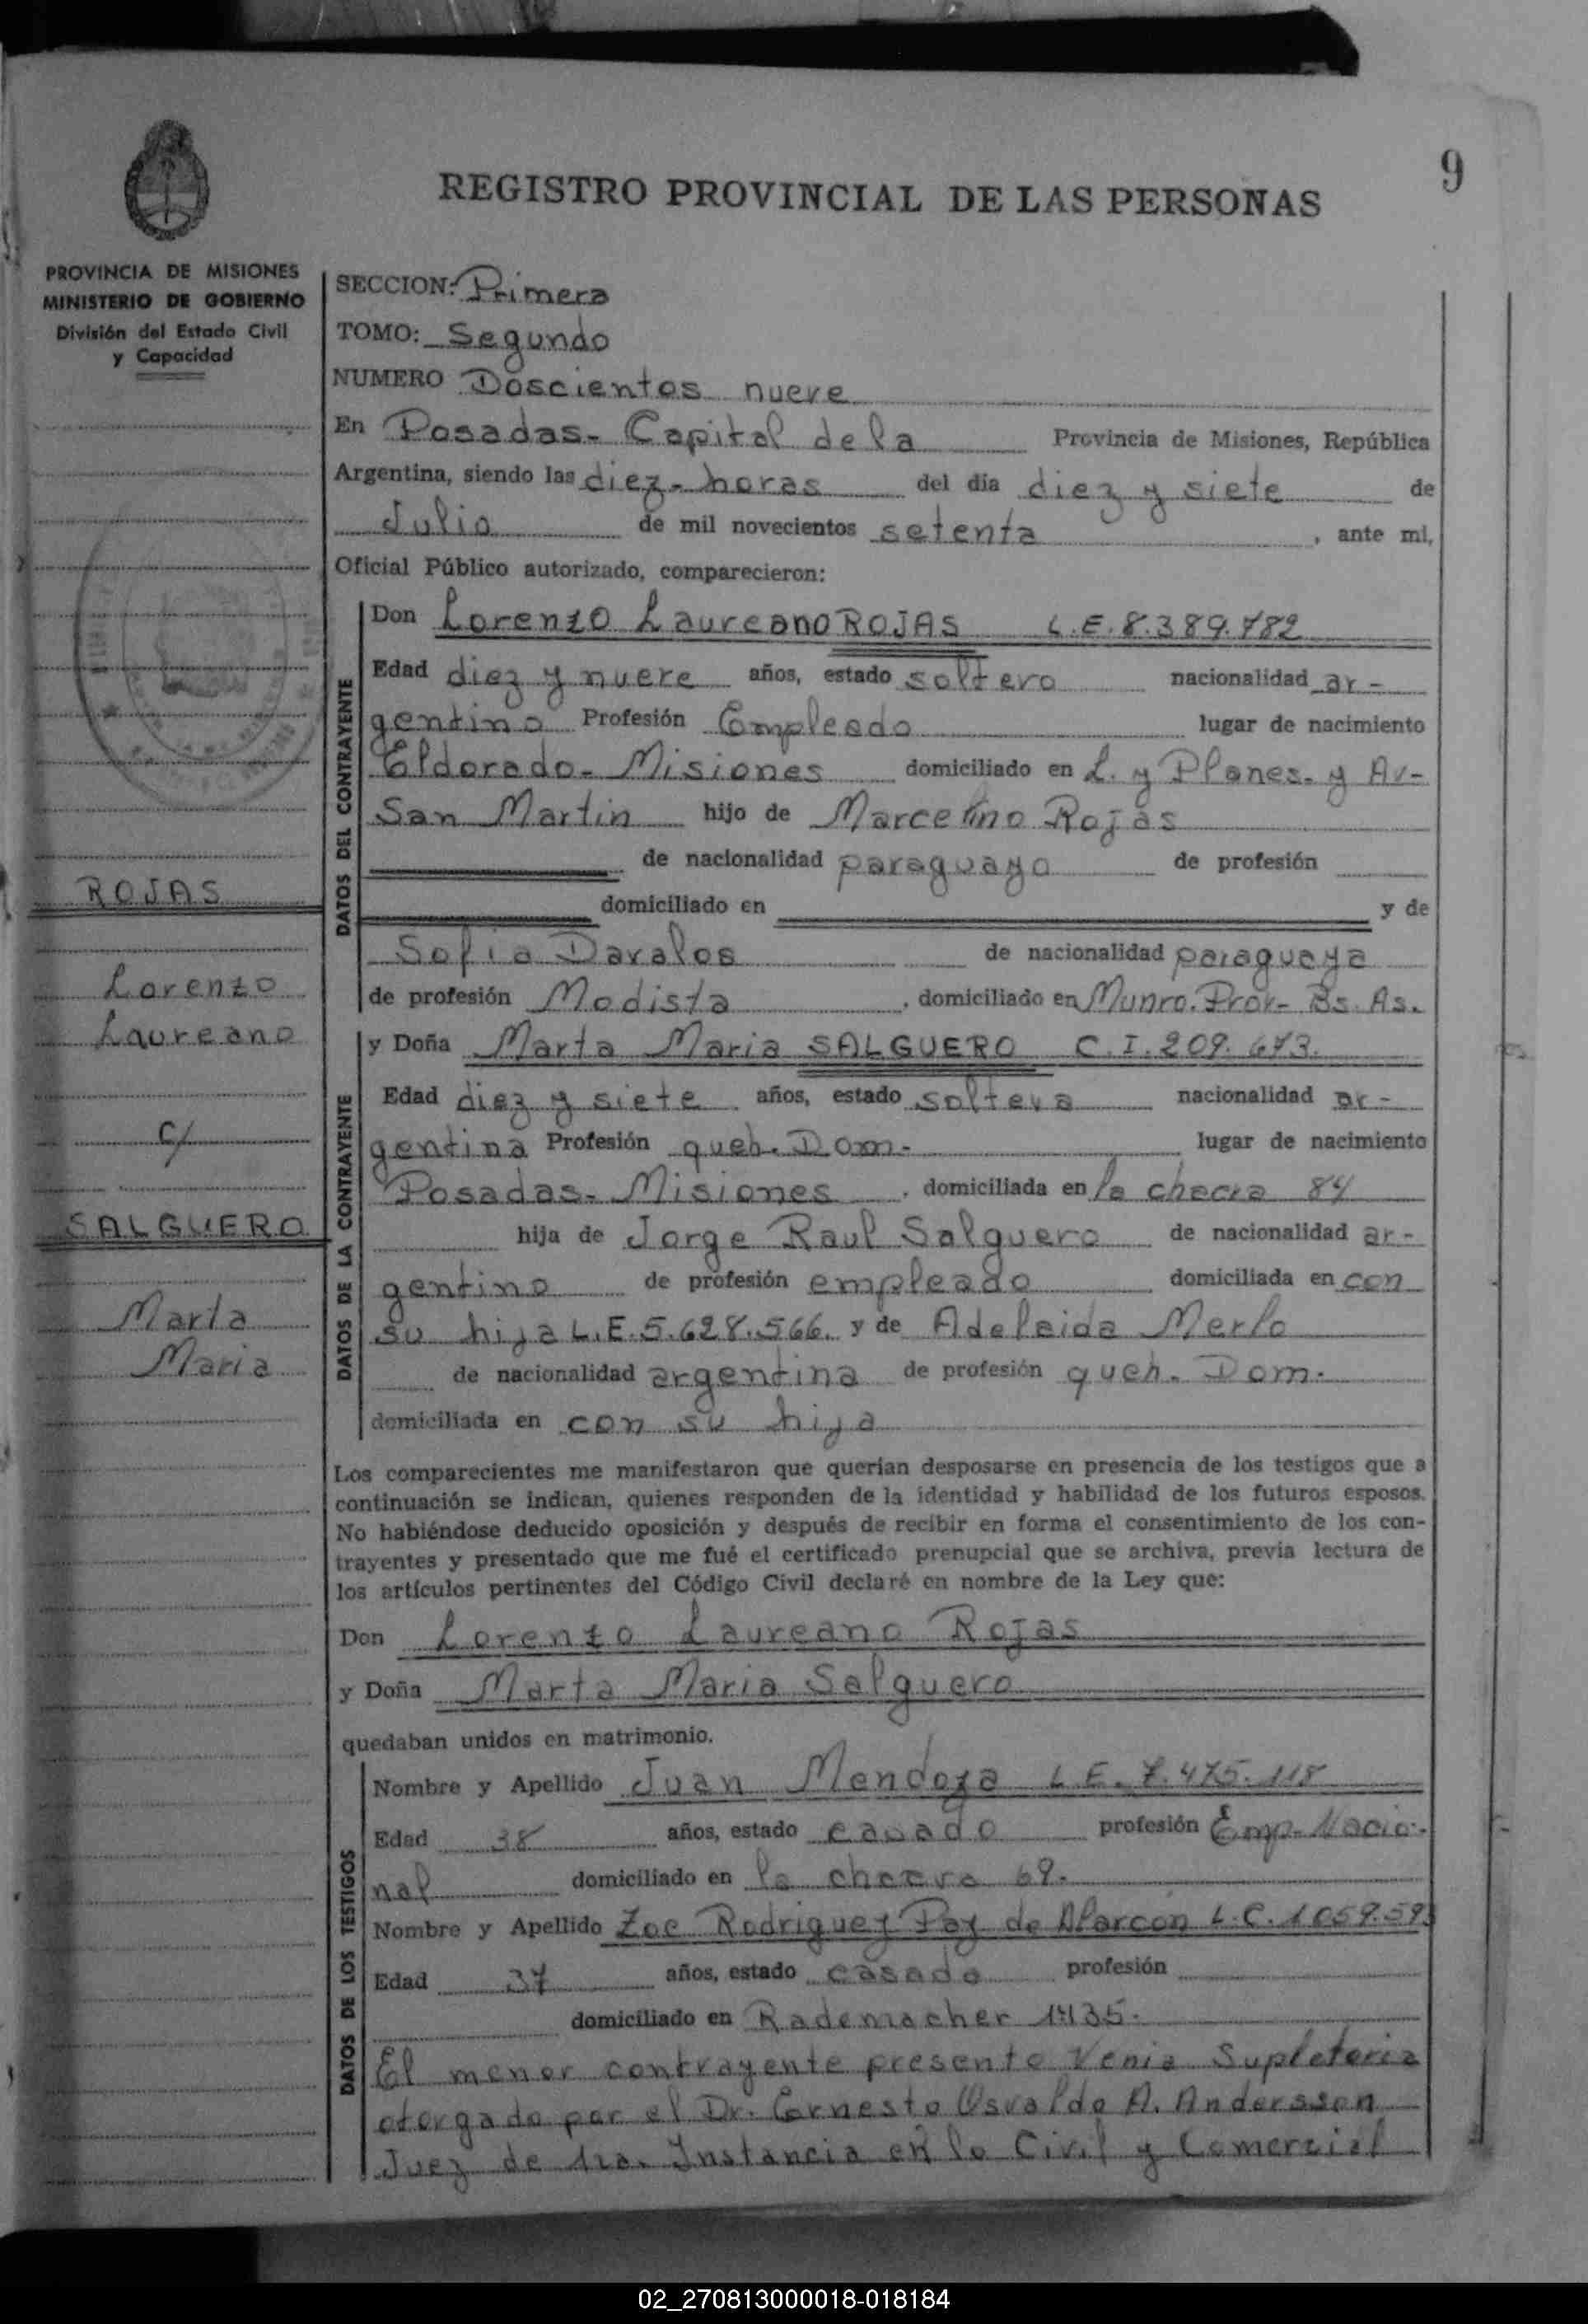 9
REGISTRO PROVINCIAL DE LAS PERSONAS
PROVINCIA DE MISIONES
MINISTERIO DE GOBIERNO
División del Estado Civil
y Capacidad
ROJAS
Lorenzo
Laureano
c/
SALGUERO
Marta
Maria
SECCION: Primera
TOMO: Segundo
NUMERO Doscientos nueve
En Posadas- Capital de la Provincia de Misiones, República
Argentina, siendo las diez- horas del día diez y siete de
Julio de mil novecientos setenta, ante mi,
Oficial Público autorizado, comparecieron:
DATOS DEL CONTRAYENTE
Don Lorenzo Laureano ROJAS L.E. 8.389.782
Edad diez y nueve años, estado soltero nacionalidad ar-
gentino Profesión Empleado lugar de nacimiento
Eldorado- Misiones domiciliado en L. y Planes- y Av-
San Martin hijo de Marcelino Rojas
de nacionalidad paraguayo de profesión
domiciliado en y de
Sofia Davalos de nacionalidad paraguaya
de profesión Modista, domiciliado en Munro. Prov- Bs. As.
DATOS DE LA CONTRAYENTE
y Doña Marta Maria SALGUERO C.I. 209.673.
Edad diez y siete años, estado soltera nacionalidad ar-
gentina Profesión queh. Dom- lugar de nacimiento
Posadas- Misiones, domiciliada en la chacra 84
hija de Jorge Raul Salguero de nacionalidad ar-
gentino de profesión empleado domiciliada en con
su hija L.E. 5.628.566. y de Adelaida Merlo
de nacionalidad argentina de profesión queh. Dom.
domiciliada en con su hija
Los comparecientes me manifestaron que querían desposarse en presencia de los testigos que a
continuación se indican, quienes responden de la identidad y habilidad de los futuros esposos.
No habiéndose deducido oposición y después de recibir en forma el consentimiento de los con-
trayentes y presentado que me fué el certificado prenupcial que se archiva, previa lectura de
los artículos pertinentes del Código Civil declaré en nombre de la Ley que:
Don Lorenzo Laureano Rojas
y Doña Marta Maria Salguero
quedaban unidos en matrimonio.
DATOS DE LOS TESTIGOS
Nombre y Apellido Juan Mendoza L.E. 7.475.118
Edad 38 años, estado casado profesión Emp- Nacio-
nal domiciliado en la chacra 69.
Nombre y Apellido Zoe Rodriguez Paz de Alarcon L.C. 1.059.59
Edad 37 años, estado casado profesión
domiciliado en Rademacher 1435.
El menor contrayente presento Venia Supletoria
otorgado por el Dr. Ernesto Osvaldo A. Andersson
Juez de 1ra. Instancia en lo Civil y Comercial
02_270813000018-018184